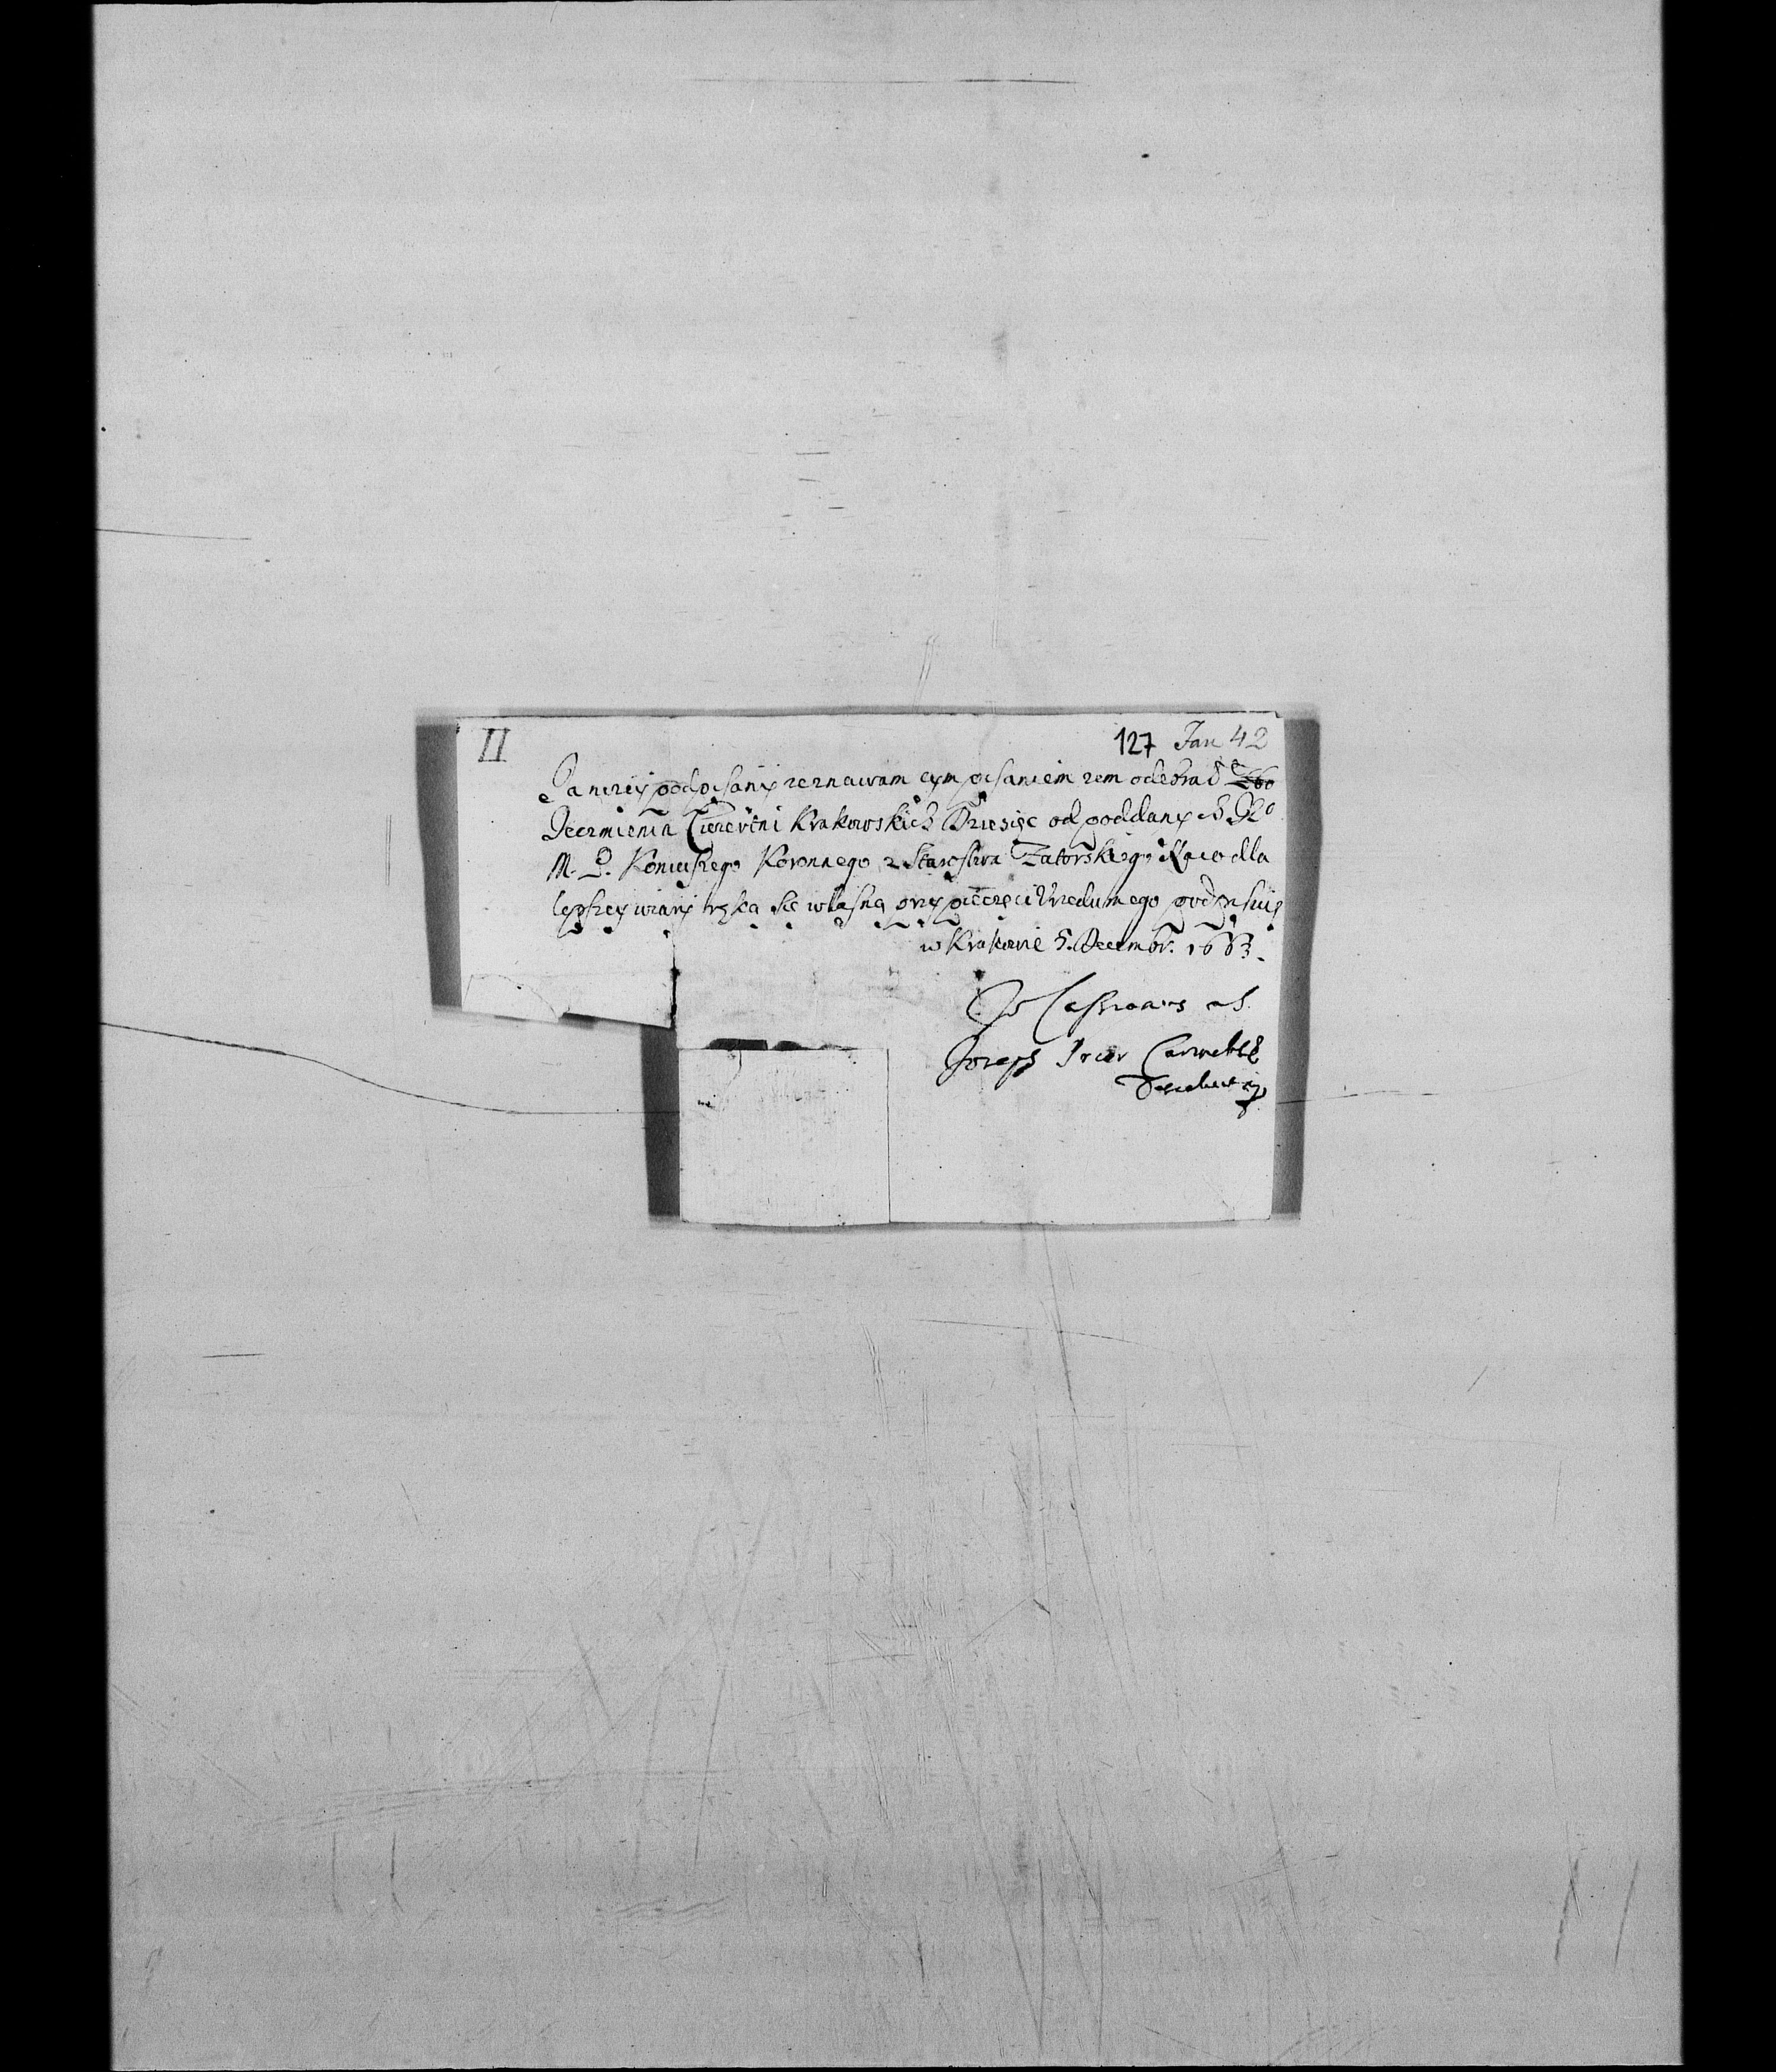 II
127 Jan 42
Ja nizey podpisany zeznawam tym pisaniem zem odebrał
Jęczmienia Cwiertni Krakowskich Dziesięc od poddanych
M. P. Koniuszego Koronnego z Starostwa Zatorskiego Na co dla
lepszey wiary ręką się własną przy pieczęci Urzędu mego podpisuię
w Krakowie 5. Decembr. 1683.
Joseph